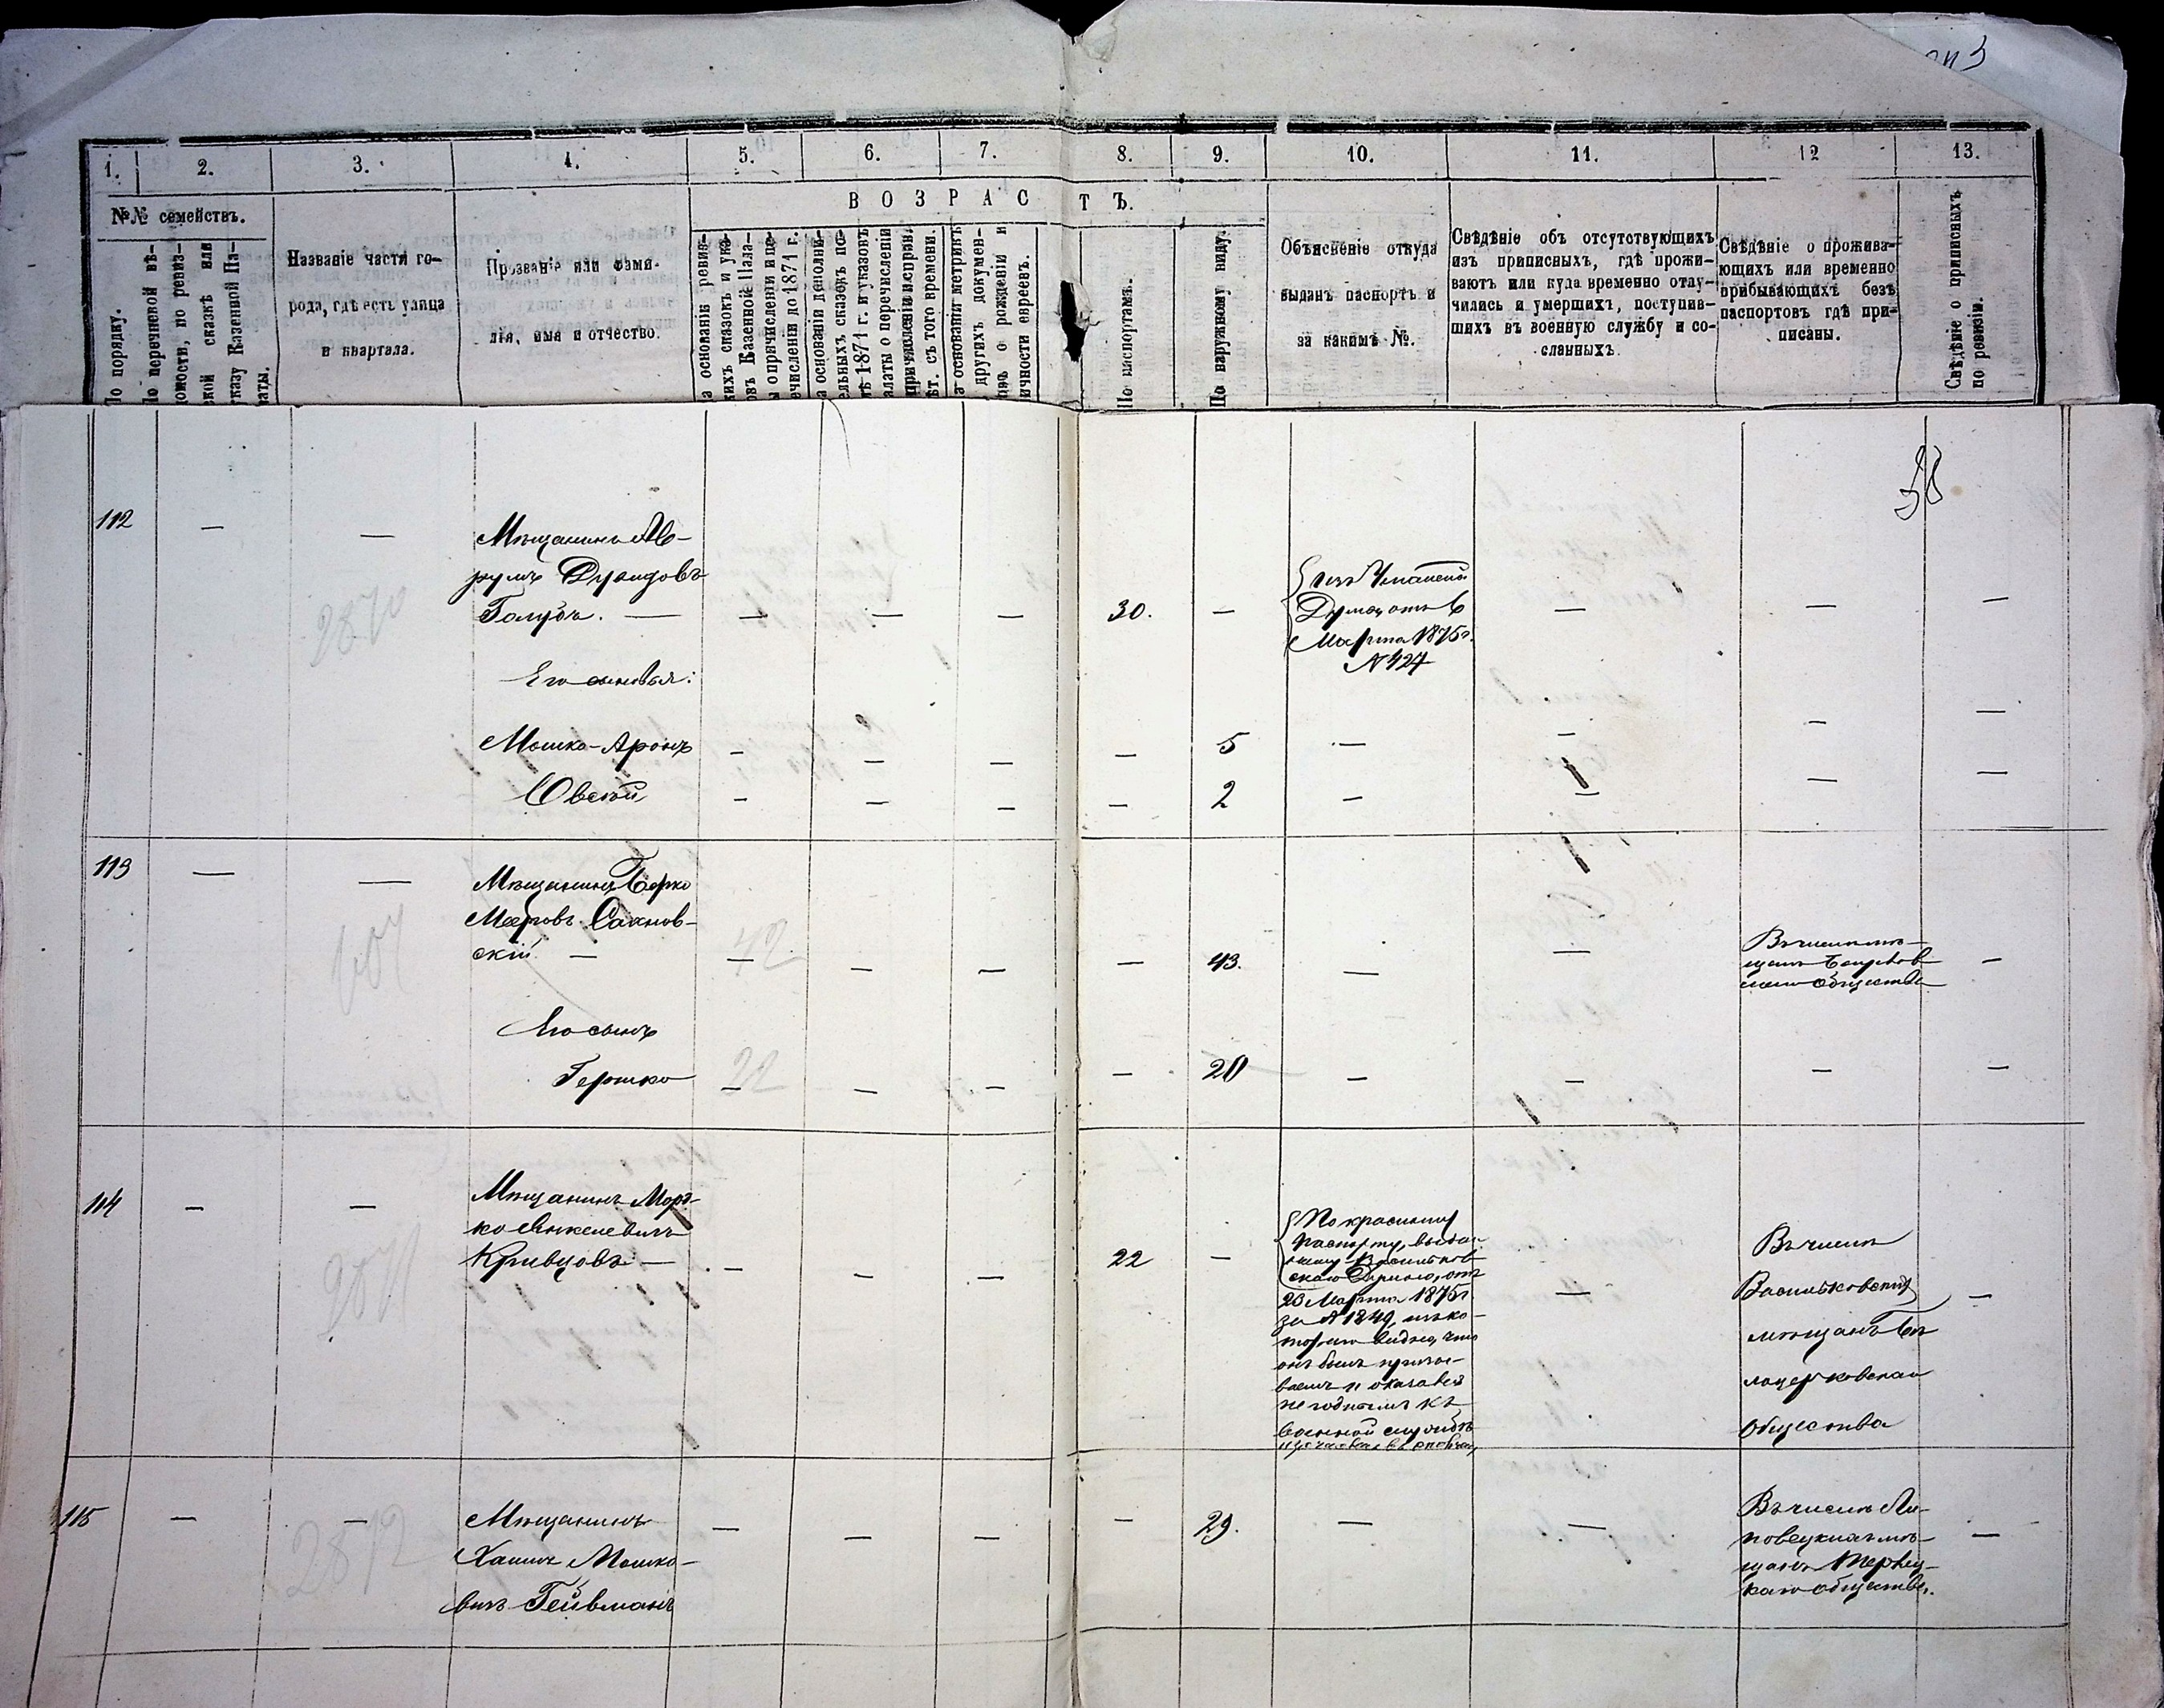 1.
2.
3.
4.
5.
6.
7.
8.
9.
10.
11.
12
13.
№№ семействъ.
ВОЗРАСТЪ.
По порядку.
По перечневой вѣ-
домости, по ревиз-
ской сказкѣ или
указу Казенной Па-
латы.
Названіе части го-
рода, гдѣ есть улица
и квартала.
Прозваніе или фами-
лія, имя и отчество.
а основаніи ревиз-
кихъ сказокъ и ука-
овъ Казенной Пала-
ы о причисленіи и пе-
ечисленіи до 1871 г.
а основаніи дополни-
ельныхъ сказокъ по-
тѣ 1871 г. и указовъ
алаты о перечисленіи
причисленіи и исправл.
ѣт. съ того времени.
а основаніи метрикъ
другихъ докумен-
овъ о рожденіи и
ичности евреевъ.
По паспортамъ.
По наружному виду.
Объясненіе откуда
выданъ паспортъ и
за какимъ №.
Свѣдѣніе объ отсутствующихъ
изъ приписныхъ, гдѣ прожи-
ваютъ или куда временно отлу-
чились и умершихъ, поступив-
шихъ въ военную службу и со-
сланныхъ.
Свѣдѣніе о прожива-
ющихъ или временно
прибывающихъ безъ
паспортовъ гдѣ при-
писаны.
Свѣдѣніе о приписныхъ
по ревизіи.
58
112
—
—
2870
Мѣщанинъ Ав-
румъ Дувидовъ
Голубъ. —
30.
изъ Уманской
Думы отъ 6
Марта 1875 г.
№ 427
Его сыновья:
Мошко-Аронъ
5
Овсѣй
2
113
—
—
607
Мѣщанинъ Берко
Мееровъ Сахнов-
скій —
42
43.
Въ числѣ мѣ-
щанъ
общества
Его сынъ
Гершко
22
20
114
—
—
2871
Мѣщанинъ Морт-
ко Янкелевичъ
Кривцовъ —
22
По красному
паспорту, выдан-
ному Васильков-
скою Думою, отъ
23 Марта 1875 г.
за № 1849, изъ ко-
тораго видно, что
онъ былъ призы-
ваемъ и оказался
негоднымъ къ
военной службѣ
Въ числѣ
Васильковскихъ
мѣщанъ Бѣ-
лоцерковскаго
общества
115
—
—
2872
Мѣщанинъ
Хаимъ Мошко-
вичъ Гейвманъ
29.
Въ числѣ Ли-
повецкихъ мѣ-
щанъ
каго общества.